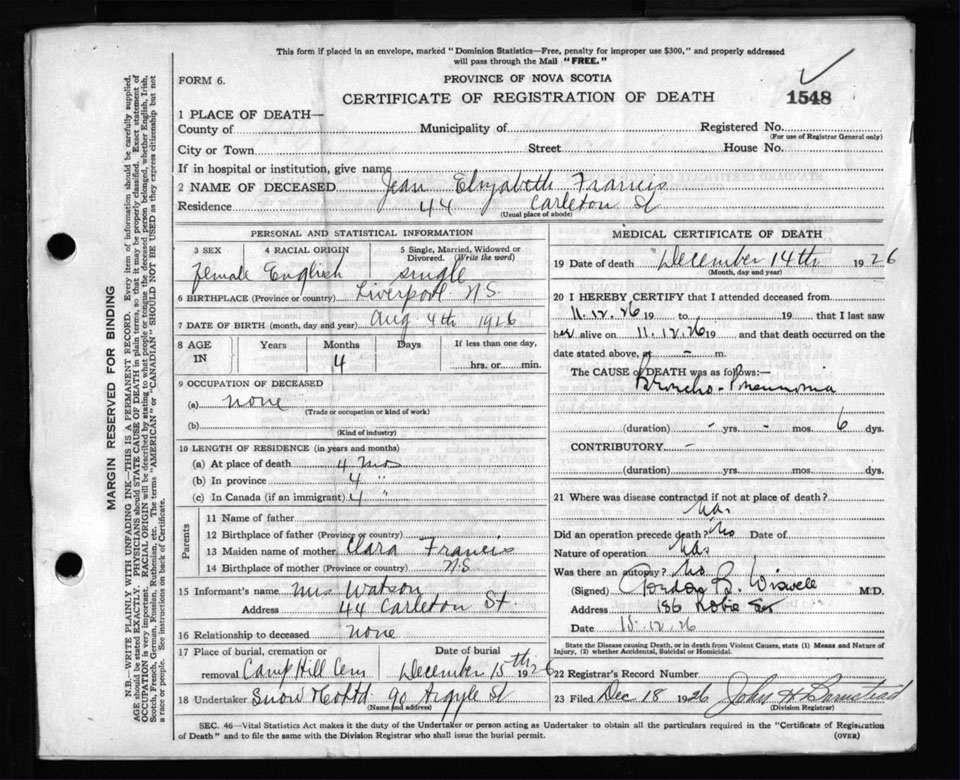 This form if placed in an envelope, marked "Dominion Statistics—Free, penalty for improper use $300," and properly addressed
will pass through the Mail "FREE."
FORM 6.
PROVINCE OF NOVA SCOTIA
CERTIFICATE OF REGISTRATION OF DEATH
1548
1 PLACE OF DEATH—
County of Municipality of Registered No.
(For use of Registrar General only)
City or Town Street House No.
If in hospital or institution, give name
2 NAME OF DECEASED Jean Elizabeth Francis
Residence 44 Carleton St
(Usual place of abode)
PERSONAL AND STATISTICAL INFORMATION
3 SEX 4 RACIAL ORIGIN 5 Single, Married, Widowed or
Divorced. (Write the word)
female English single
6 BIRTHPLACE (Province or country) Liverpool NS
7 DATE OF BIRTH (month, day and year) Aug 4th 1926
8 AGE Years Months Days If less than one day,
IN 4 hrs. or min.
9 OCCUPATION OF DECEASED
(a) none
(Trade or occupation or kind of work)
(b)
(Kind of industry)
10 LENGTH OF RESIDENCE (in years and months)
(a) At place of death 4 mos
(b) In province 4 "
(c) In Canada (if an immigrant) 4 "
Parents
11 Name of father
12 Birthplace of father (Province or country)
13 Maiden name of mother Clara Francis
14 Birthplace of mother (Province or country) N.S
15 Informant's name Mrs Watson
Address 44 Carleton St.
16 Relationship to deceased none
17 Place of burial, cremation or Date of burial
removal Camp Hill Cem December 15th 26
18 Undertaker Snow & Co Ltd 90 Argyle St
(Name and address)
MEDICAL CERTIFICATE OF DEATH
19 Date of death December 14th 1926
(Month, day and year)
20 I HEREBY CERTIFY that I attended deceased from
11.12.26 19 to 19 that I last saw
her alive on 11.12.26 19 and that death occurred on the
date stated above, at - m.
The CAUSE of DEATH was as follows:—
Broncho-Pneumonia
(duration) - yrs. - mos. 6 dys.
CONTRIBUTORY -
(duration) yrs. mos. dys.
21 Where was disease contracted if not at place of death?
Na.
Did an operation precede death? No Date of
Nature of operation Na.
Was there an autopsy? No
(Signed) Gordon B. Wiswell M.D.
Address 186 Robie St
Date 15.12.26
State the Disease causing Death, or in death from Violent Causes, state (1) Means and Nature of
Injury, (2) whether Accidental, Suicidal or Homicidal.
22 Registrar's Record Number
23 Filed Dec 18 1926 John H Barnstead
(Division Registrar)
SEC. 46—Vital Statistics Act makes it the duty of the Undertaker or person acting as Undertaker to obtain all the particulars required in the "Certificate of Registration
of Death" and to file the same with the Division Registrar who shall issue the burial permit.
(OVER)
MARGIN RESERVED FOR BINDING
N.B.—WRITE PLAINLY WITH UNFADING INK—THIS IS A PERMANENT RECORD. Every item of information should be carefully supplied.
AGE should be stated EXACTLY. PHYSICIANS should STATE CAUSE OF DEATH in plain terms, so that it may be properly classified. Exact statement of
OCCUPATION is very important. RACIAL ORIGIN will be described by stating to what people or tongue the deceased person belonged, whether English, Irish,
Scotch, French, German, Russian, Ruthenian, etc. The terms "AMERICAN" or "CANADIAN" SHOULD NOT BE USED as they express citizenship but not
a race or people. See instructions on back of Certificate.